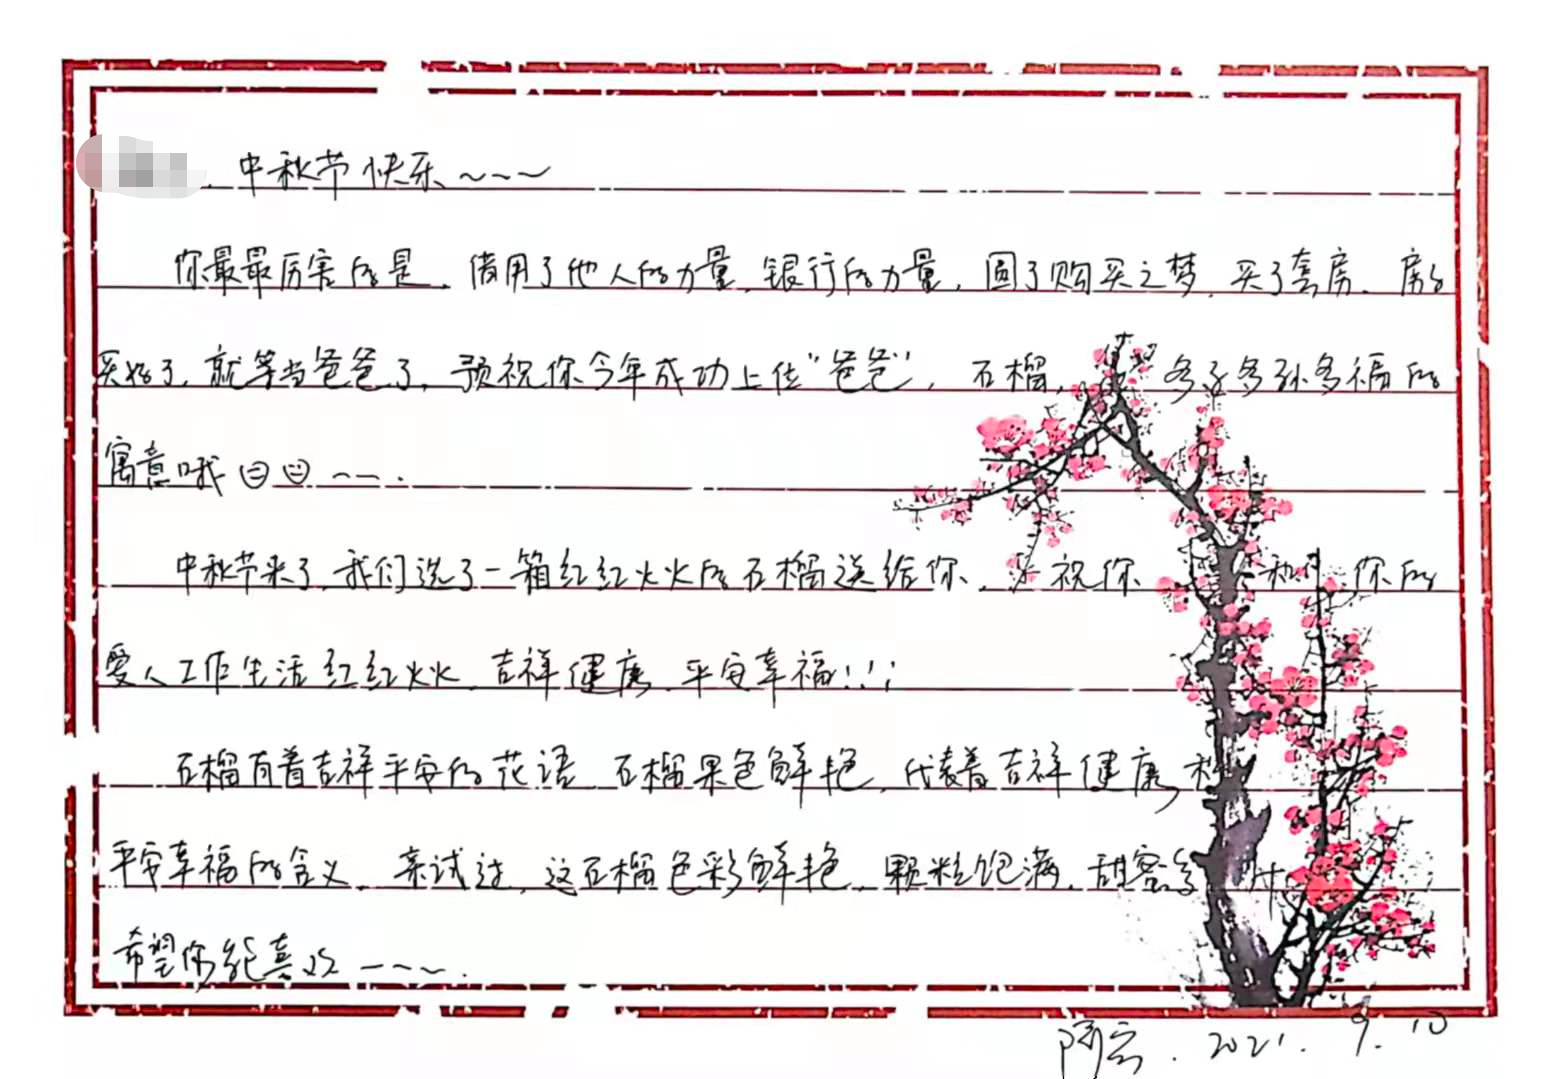 中秋节快乐~~~
你最最厉害的是，借用了他人的力量，银行的力量，圆了购买之梦，买了套房，房子
买好了，就等当爸爸了，预祝你今年成功上位“爸爸”，石榴，多子多孙多福的
寓意哦~~.
中秋节来了，我们选了一箱红红火火的石榴送给你，祝你和你的
爱人工作生活红红火火，吉祥健康，平安幸福!!!
石榴有着吉祥平安的花语，石榴果色鲜艳，代表着吉祥健康
平安幸福的含义，亲试过，这石榴色彩鲜艳，颗粒饱满，甜蜜多汁
希望你能喜欢~~~.
阿云.2021.9.10